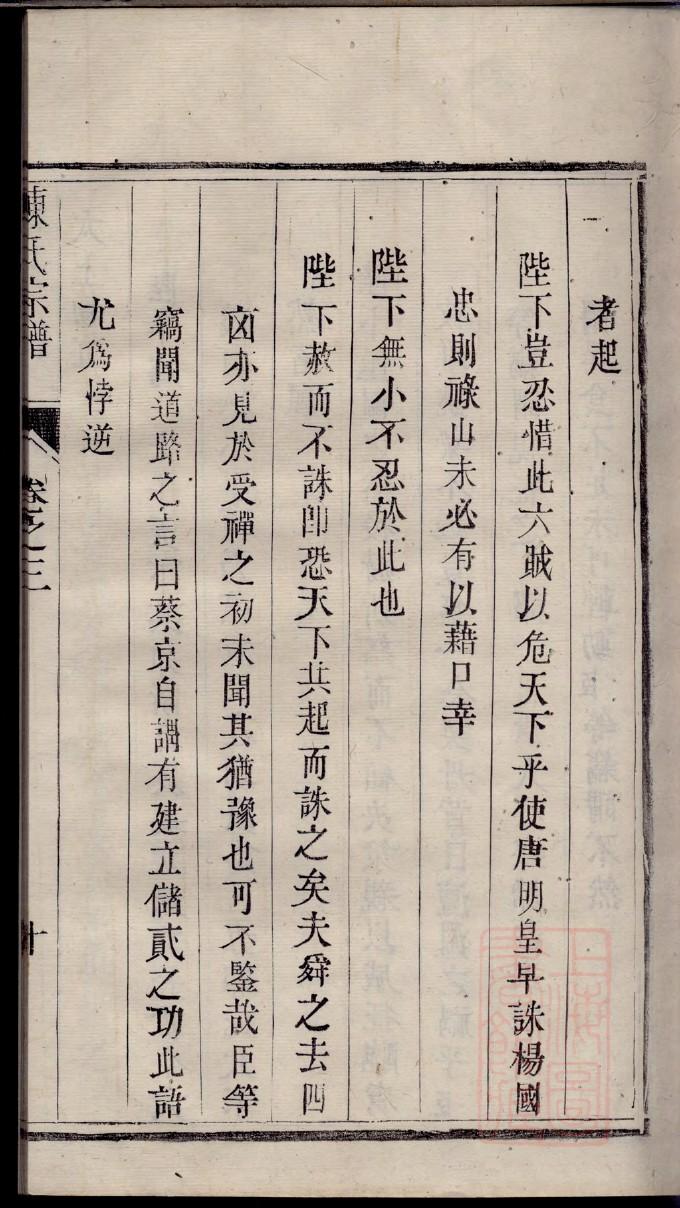 者起
陛下豈忍惜此六賊以危天下乎使唐明皇早誅楊國
忠則祿山未必有以藉口幸
陛下無小不忍於此也
陛下赦而不誅卽恐天下共起而誅之矣夫舜之去四
凶亦見於受禪之初未聞其猶豫也可不鑒哉臣等
竊聞道路之言曰蔡京自謂有建立儲貳之功此語
尤爲悖逆
陳氏宗譜
卷之三
十